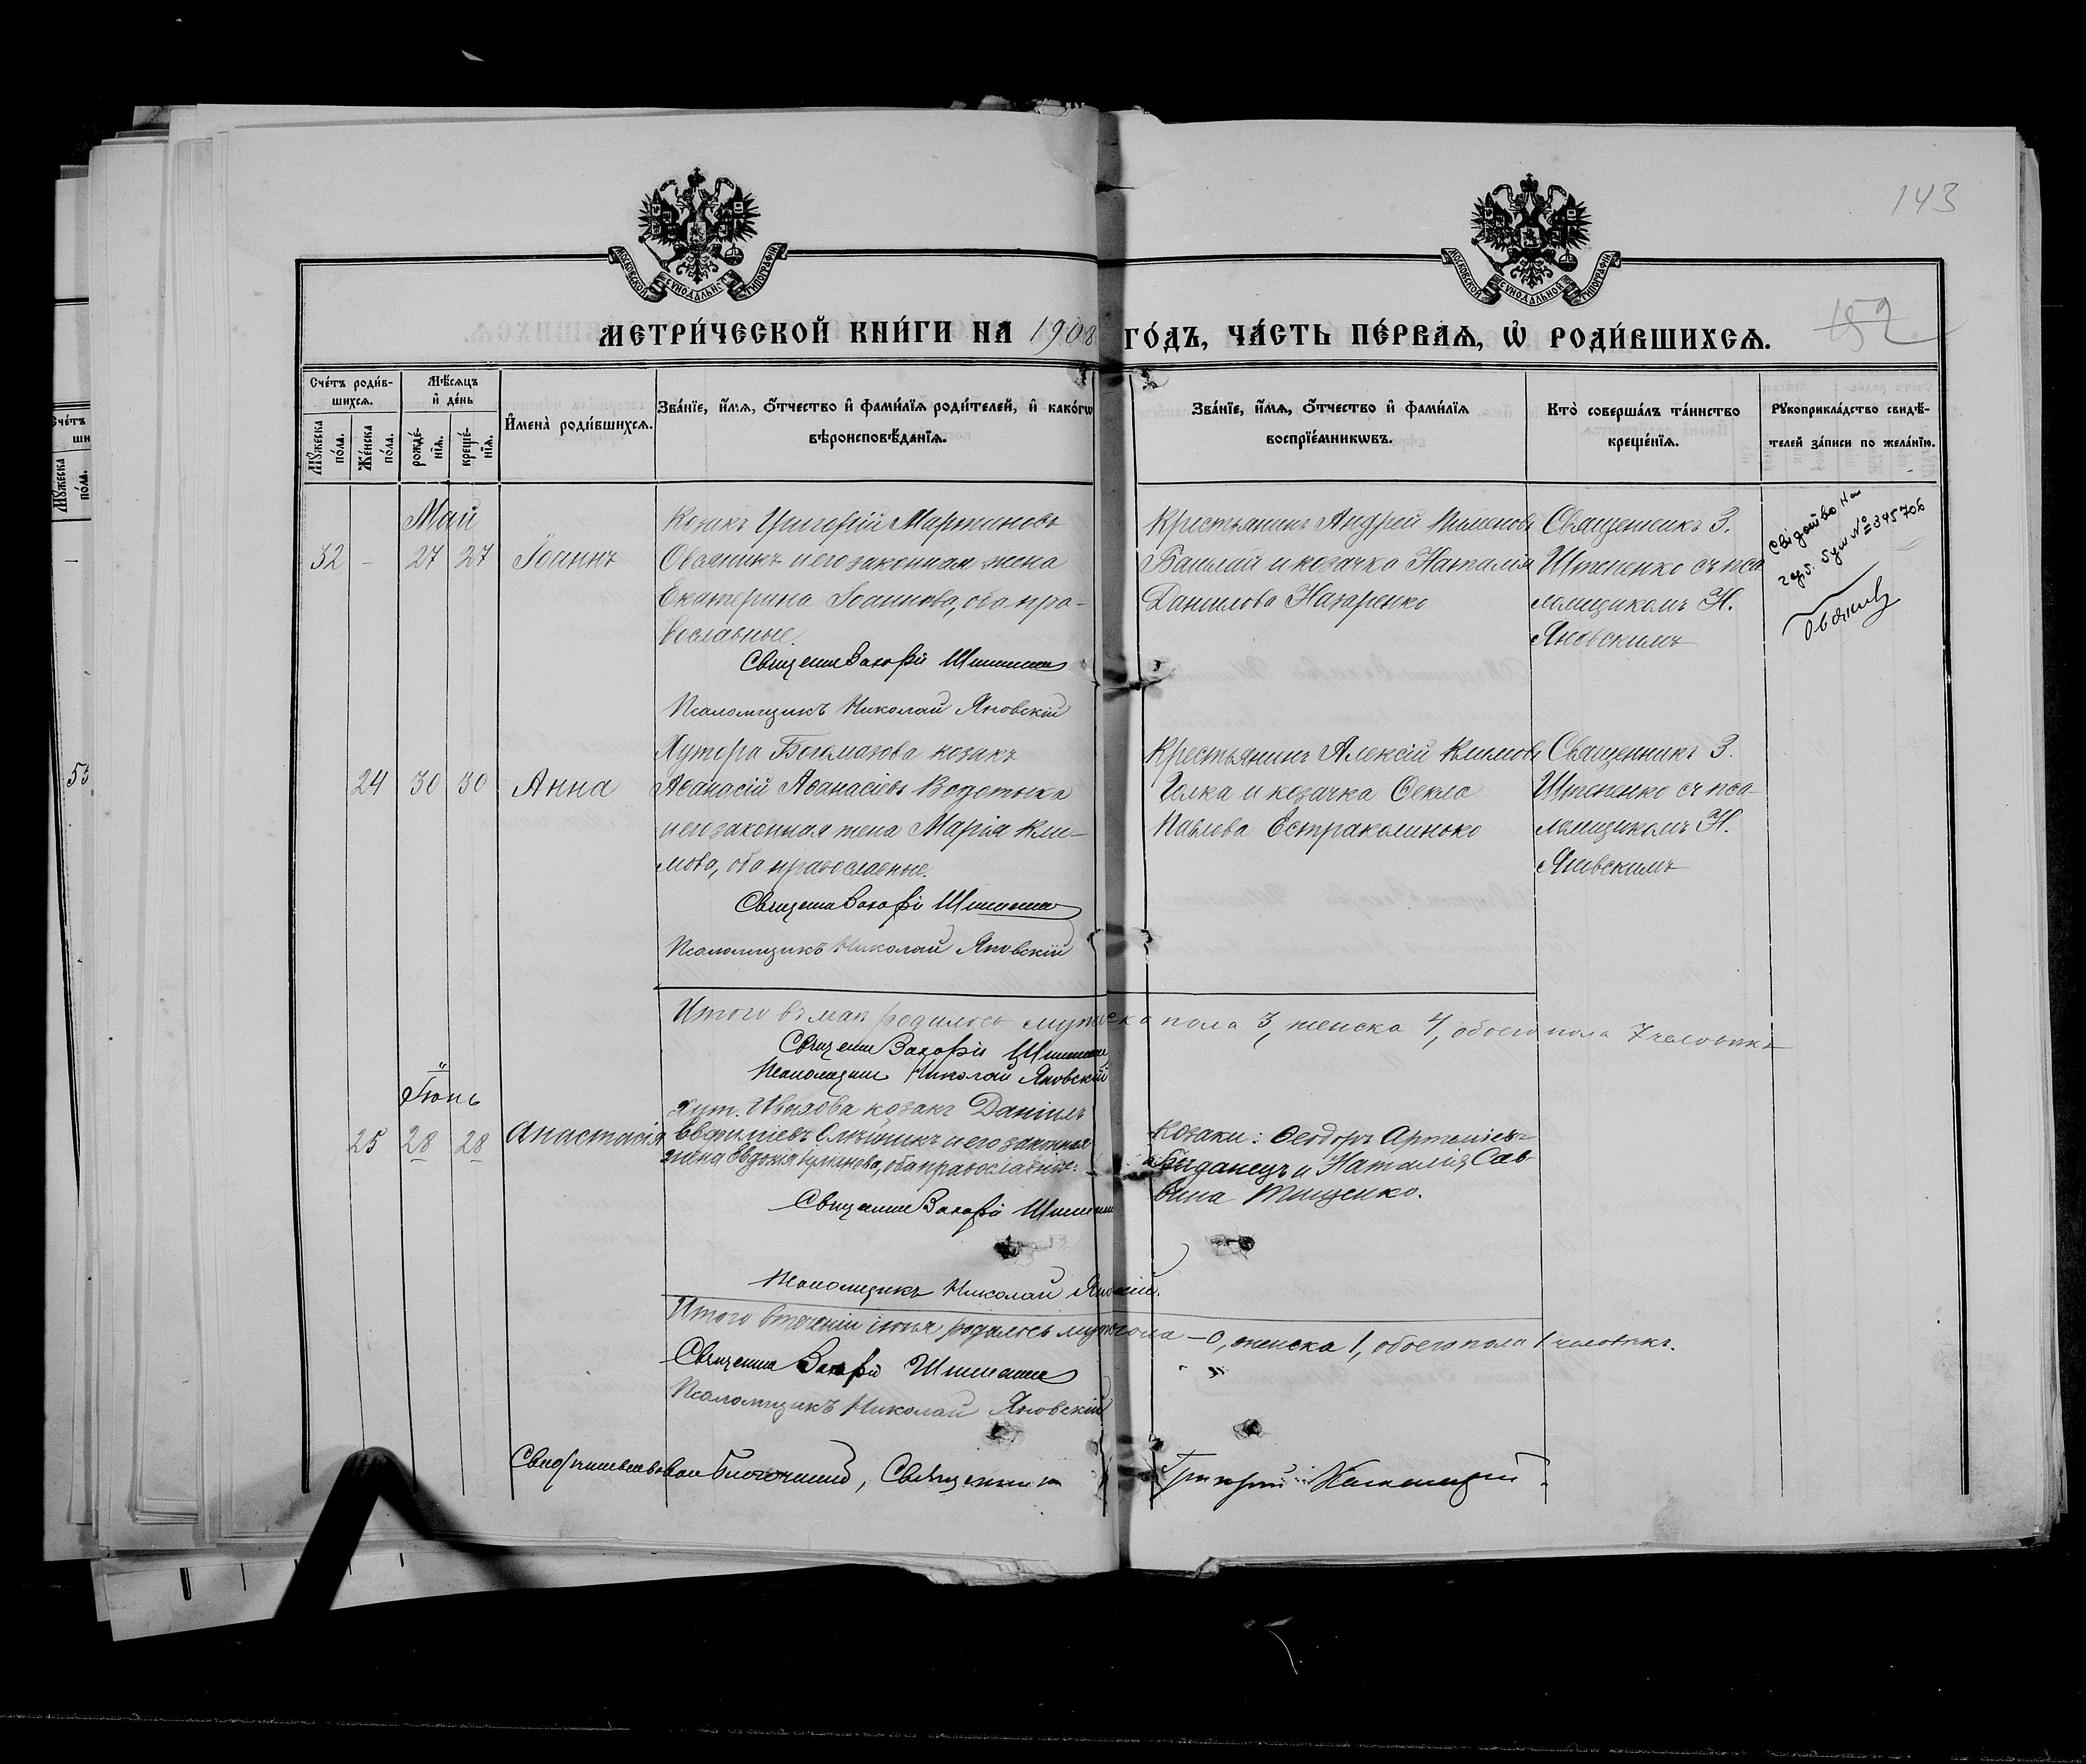 143
152
МОСКОВСКОЙ СѴНОДАЛЬНОЙ ТИПОГРАФІИ
МОСКОВСКОЙ СѴНОДАЛЬНОЙ ТИПОГРАФІИ
МЕТРИ́ЧЕСКОЙ КНИ́ГИ НА 1908 ГО́ДЪ, ЧА́СТЬ ПЕ́РВАѦ, Ѡ҆ РОДИ́ВШИХСѦ.
Сче́тъ роди́в-
шихсѧ.
Мѣ́сѧцъ
и҆ де́нь
Мꙋ́жеска по́ла.
Же́нска по́ла.
рожде́-
нїѧ.
креще́-
нїѧ.
И҆мена̀ роди́вшихсѧ.
Зва́нїе, и҆́мѧ, ѻ҆́тчество и҆ фами́лїѧ роди́телей, и҆ како́гѡ
вѣроисповѣ́данїѧ.
Зва́нїе, и҆́мѧ, ѻ҆́тчество и҆ фами́лїѧ
воспрїе́мникѡвъ.
Кто̀ соверша́лъ та́инство
креще́нїѧ.
Рꙋкоприкла́дство свидѣ́-
телей за́писи по жела́нїю.
Май
32 - 27 27 Іоаннъ
Козакъ Григорій Мартиновъ
Овсяникъ и его законная жена
Екатерина Іоаннова, оба пра-
вославные.
Священникъ Захарій
Псаломщикъ Николай Яновскій
Крестьянинъ Андрей Пименовъ
и козачка Наталия
Данилова Назаренко
Священникъ З.
съ пса
ломщикомъ Н.
Яновскимъ
№ 345706
24 30 30 Анна
Хутора Богомазова козакъ
Аѳанасій Аѳанасіевъ Водотыка
и его законная жена Марія Кли-
мова, оба православные.
Священникъ Захарій
Псаломщикъ Николай Яновскій
Крестьянинъ Алексій Климовъ
Галка и козачка Ѳекла
Павлова
Священникъ З.
съ пса-
ломщикомъ Н.
Яновскимъ
Итого въ маѣ родилось мужеска пола 3, женска 4, обоего пола 7 человѣкъ
Священникъ Захарій
Псаломщикъ Николай Яновскій
Іюнь
25 28 28 Анастасія
Хут. козакъ Даніилъ
Евфиміевъ Олѣйникъ и его законная
жена Евдокія оба православные.
Священникъ Захарій
Псаломщикъ Николай Яновскій.
Козаки: Ѳеодоръ Артеміевъ
и Наталія Сав-
вина Тищенко.
Итого въ теченіи іюня родилось муж. пола — 0, женска 1, обоего пола 1 человѣкъ.
Священникъ Захарій
Псаломщикъ Николай Яновскій
Свидѣтельствовалъ Благочинный, Священникъ Григорій
Сче́тъ
ши
Мꙋ́жеска
по́ла.
53